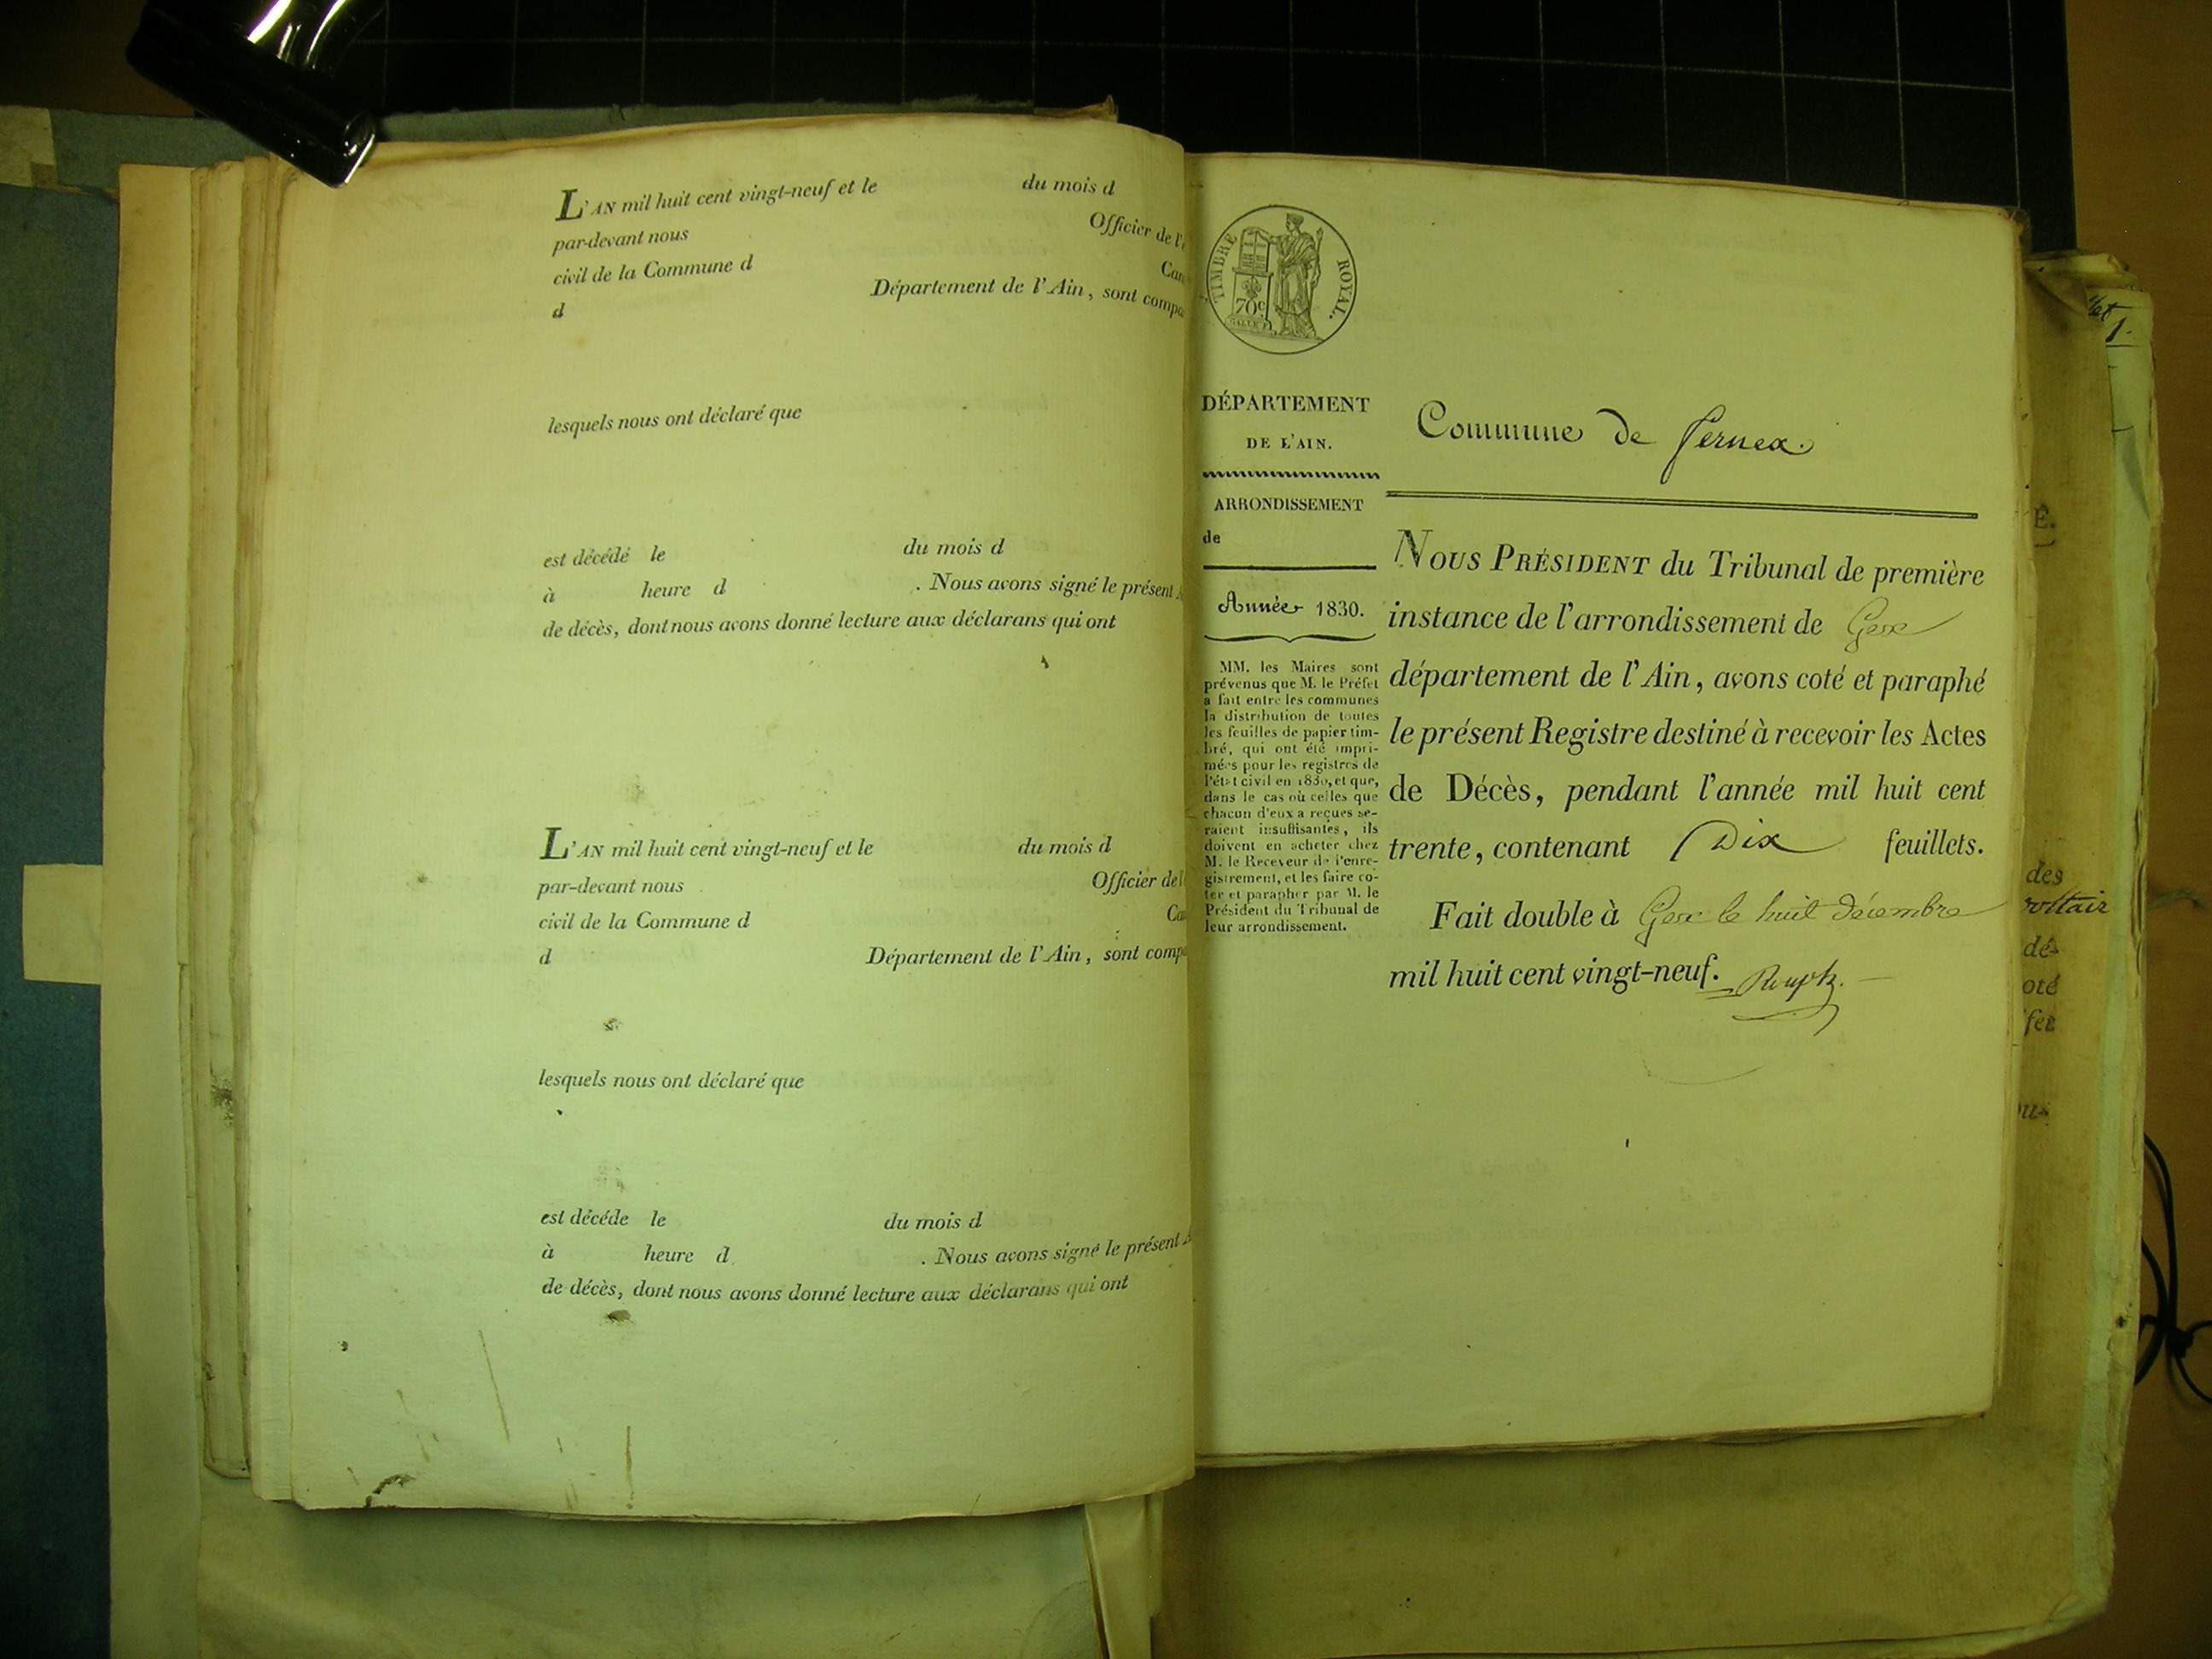 L'AN mil huit cent vingt-neuf et le du mois d
par-devant nous Officier de l'
civil de la Commune d Can
d Département de l'Ain, sont compa
lesquels nous ont déclaré que
est décédé le du mois d
à heure d . Nous avons signé le présent
de décès, dont nous avons donné lecture aux déclarans qui ont
L'AN mil huit cent vingt-neuf et le du mois d
par-devant nous Officier de l
civil de la Commune d Ca
d Département de l'Ain, sont comp
lesquels nous ont déclaré que
est décédé le du mois d
à heure d . Nous avons signé le présent
de décès, dont nous avons donné lecture aux déclarans qui ont
TIMBRE ROYAL.
70c
DÉPARTEMENT
DE L'AIN.
ARRONDISSEMENT
de
Année 1830.
MM. les Maires sont
prévenus que M. le Préfet
a fait entre les communes
la distribution de toutes
les feuilles de papier tim-
bré, qui ont été impri-
mées pour les registres de
l'état civil en 1830, et que,
dans le cas où celles que
chacun d'eux a reçues se-
raient insuffisantes, ils
doivent en acheter chez
M. le Receveur de l'enre-
gistrement, et les faire co-
ter et parapher par M. le
Président du Tribunal de
leur arrondissement.
Commune de Fernex.
NOUS PRÉSIDENT du Tribunal de première
instance de l'arrondissement de Gex
département de l'Ain, avons coté et paraphé
le présent Registre destiné à recevoir les Actes
de Décès, pendant l'année mil huit cent
trente, contenant Dix feuillets.
Fait double à Gex le huit décembre
mil huit cent vingt-neuf.
1.
É.
des
voltair
dé-
oté
fet